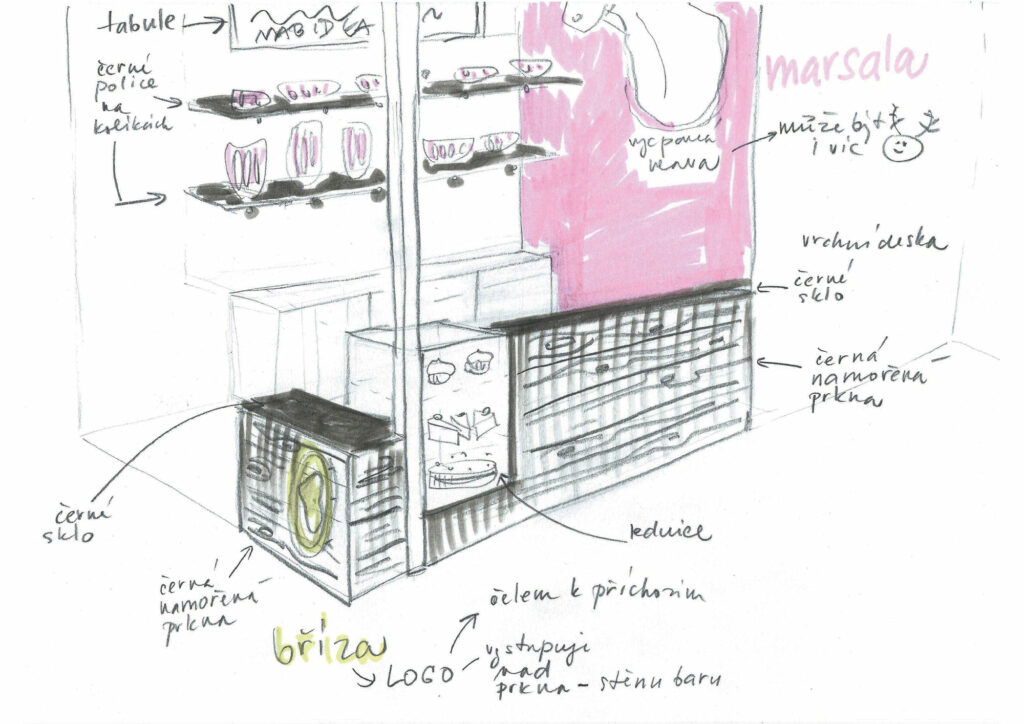 tabule
NABÍDKA
černé
police
na
kolíkách
marsala
vycpaná
hlava
může být
i víc
vrchní deska
černé
sklo
černá
namořená
prkna
černé
sklo
lednice
černá
namořená
prkna
čelem k příchozím
bříza
LOGO
vystupují
nad
prkna – stěnu baru